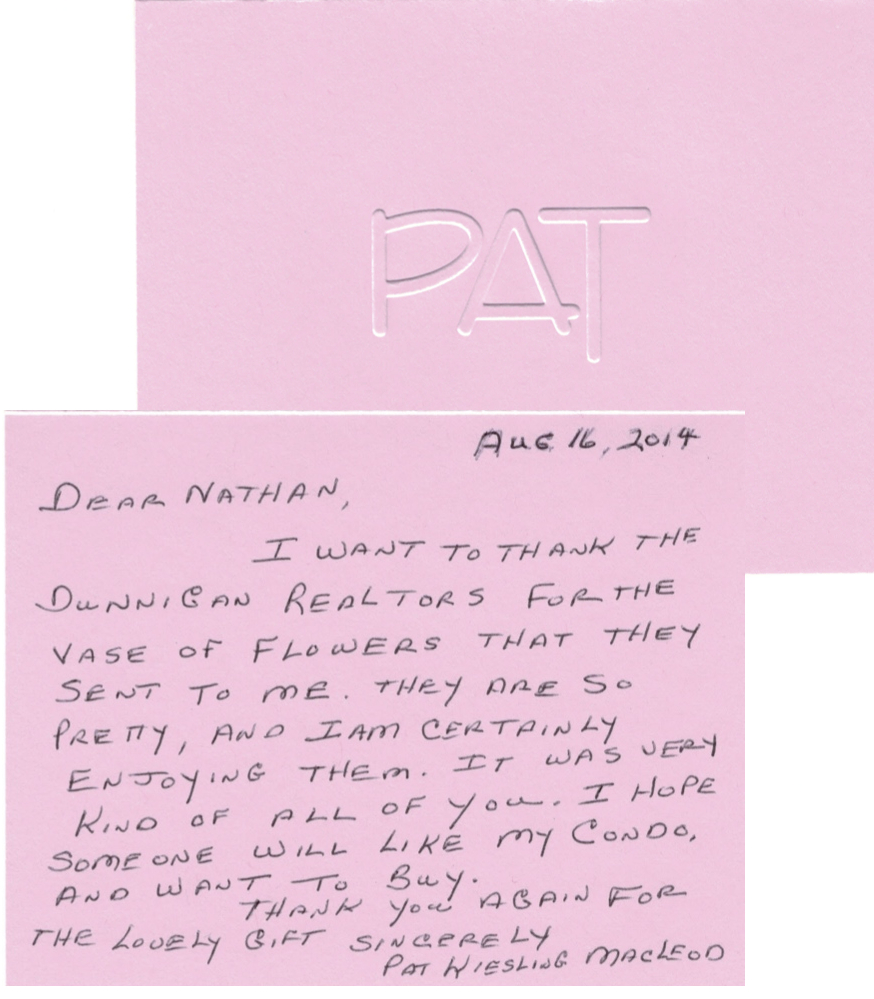 PAT
AUG 16, 2014
DEAR NATHAN,
I WANT TO THANK THE
DUNNIGAN REALTORS FOR THE
VASE OF FLOWERS THAT THEY
SENT TO ME. THEY ARE SO
PRETTY, AND I AM CERTAINLY
ENJOYING THEM. IT WAS VERY
KIND OF ALL OF YOU. I HOPE
SOMEONE WILL LIKE MY CONDO,
AND WANT TO BUY.
THANK YOU AGAIN FOR
THE LOVELY GIFT SINCERELY
PAT KIESLING MACLEOD